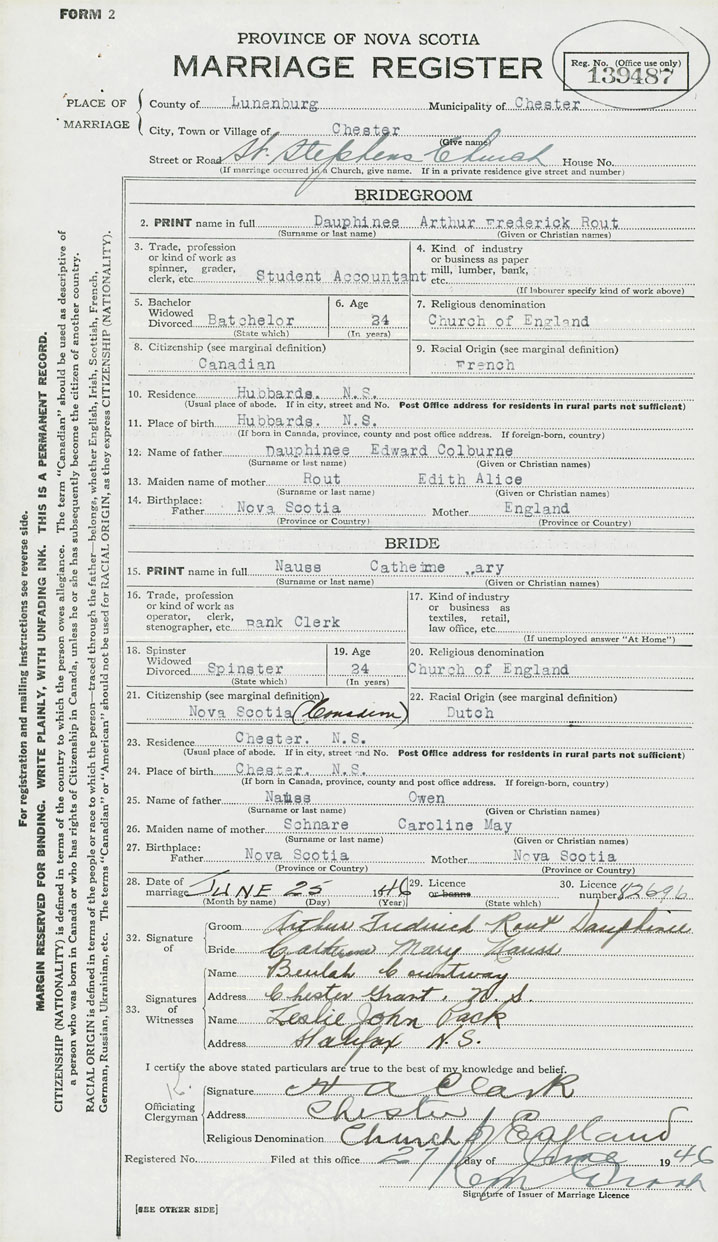 FORM 2
PROVINCE OF NOVA SCOTIA
MARRIAGE REGISTER
Reg. No. (Office use only)
139487
PLACE OF MARRIAGE
County of Lunenburg Municipality of Chester
City, Town or Village of Chester
(Give name)
Street or Road St. Stephens Church House No.
(If marriage occurred in a Church, give name. If in a private residence give street and number)
BRIDEGROOM
2. PRINT name in full Dauphinee Arthur Frederick Rout
(Surname or last name) (Given or Christian names)
3. Trade, profession or kind of work as spinner, grader, clerk, etc. Student Accountant
4. Kind of industry or business as paper mill, lumber, bank, etc.
(If labourer specify kind of work above)
5. Bachelor Widowed Divorced Batchelor
(State which)
6. Age 24
(In years)
7. Religious denomination
Church of England
8. Citizenship (see marginal definition)
Canadian
9. Racial Origin (see marginal definition)
French
10. Residence Hubbards. N.S.
(Usual place of abode. If in city, street and No. Post Office address for residents in rural parts not sufficient)
11. Place of birth Hubbards. N.S.
(If born in Canada, province, county and post office address. If foreign-born, country)
12. Name of father Dauphinee Edward Colburne
(Surname or last name) (Given or Christian names)
13. Maiden name of mother Rout Edith Alice
(Surname or last name) (Given or Christian names)
14. Birthplace: Father Nova Scotia Mother England
(Province or Country) (Province or Country)
BRIDE
15. PRINT name in full Nauss Catheime Mary
(Surname or last name) (Given or Christian names)
16. Trade, profession or kind of work as operator, clerk, stenographer, etc. Bank Clerk
17. Kind of industry or business as textiles, retail, law office, etc.
(If unemployed answer "At Home")
18. Spinster Widowed Divorced Spinster
(State which)
19. Age 24
(In years)
20. Religious denomination
Church of England
21. Citizenship (see marginal definition)
Nova Scotia (Canadian)
22. Racial Origin (see marginal definition)
Dutch
23. Residence Chester. N.S.
(Usual place of abode. If in city, street and No. Post Office address for residents in rural parts not sufficient)
24. Place of birth Chester. N.S.
(If born in Canada, province, county and post office address. If foreign-born, country)
25. Name of father Nauss Owen
(Surname or last name) (Given or Christian names)
26. Maiden name of mother Schnare Caroline May
(Surname or last name) (Given or Christian names)
27. Birthplace: Father Nova Scotia Mother Nova Scotia
(Province or Country) (Province or Country)
28. Date of marriage JUNE 25 1946
(Month by name) (Day) (Year)
29. Licence or banns
(State which)
30. Licence number 82696
32. Signature of
Groom Arthur Frederick Rout Dauphinee
Bride Catherine Mary Nauss
33. Signatures of Witnesses
Name Beulah Countway
Address Chester Grant, N.S.
Name Leslie John Pack
Address Halifax N.S.
I certify the above stated particulars are true to the best of my knowledge and belief.
Officiating Clergyman
Signature N A Clark
Address Chester
Religious Denomination Church of England
Registered No. Filed at this office 27 day of June 1946
Signature of Issuer of Marriage Licence
[SEE OTHER SIDE]
For registration and mailing instructions see reverse side.
MARGIN RESERVED FOR BINDING. WRITE PLAINLY, WITH UNFADING INK. THIS IS A PERMANENT RECORD.
CITIZENSHIP (NATIONALITY) is defined in terms of the country to which the person owes allegiance. The term "Canadian" should be used as descriptive of
a person who was born in Canada or who has rights of Citizenship in Canada, unless he or she has subsequently become the citizen of another country.
RACIAL ORIGIN is defined in terms of the people or race to which the person—traced through the father—belongs, whether English, Irish, Scottish, French,
German, Russian, Ukrainian, etc. The terms "Canadian" or "American" should not be used for RACIAL ORIGIN, as they express CITIZENSHIP (NATIONALITY).